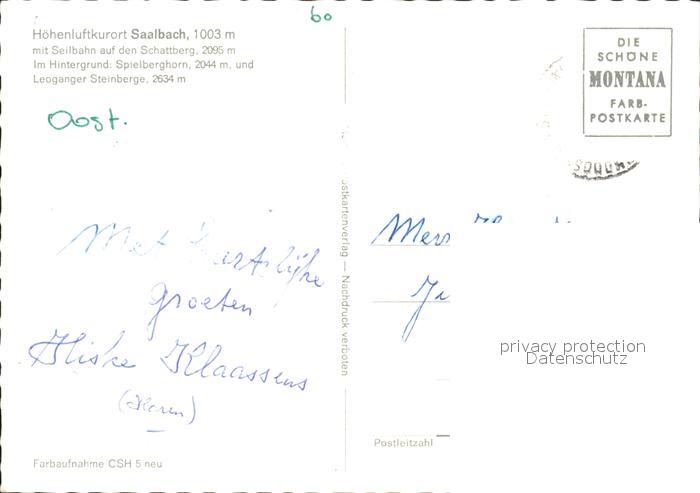 60
Höhenluftkurort Saalbach, 1003 m
mit Seilbahn auf den Schattberg, 2095 m
Im Hintergrund: Spielberghorn, 2044 m, und
Leoganger Steinberge, 2634 m
Oost.
Met Hartelijke
groeten
Hiske Klaassens
(Haren)
Farbaufnahme CSH 5 neu
ostkartenverlag — Nachdruck verboten
DIE
SCHÖNE
MONTANA
FARB-
POSTKARTE
privacy protection
Datenschutz
Postleitzahl